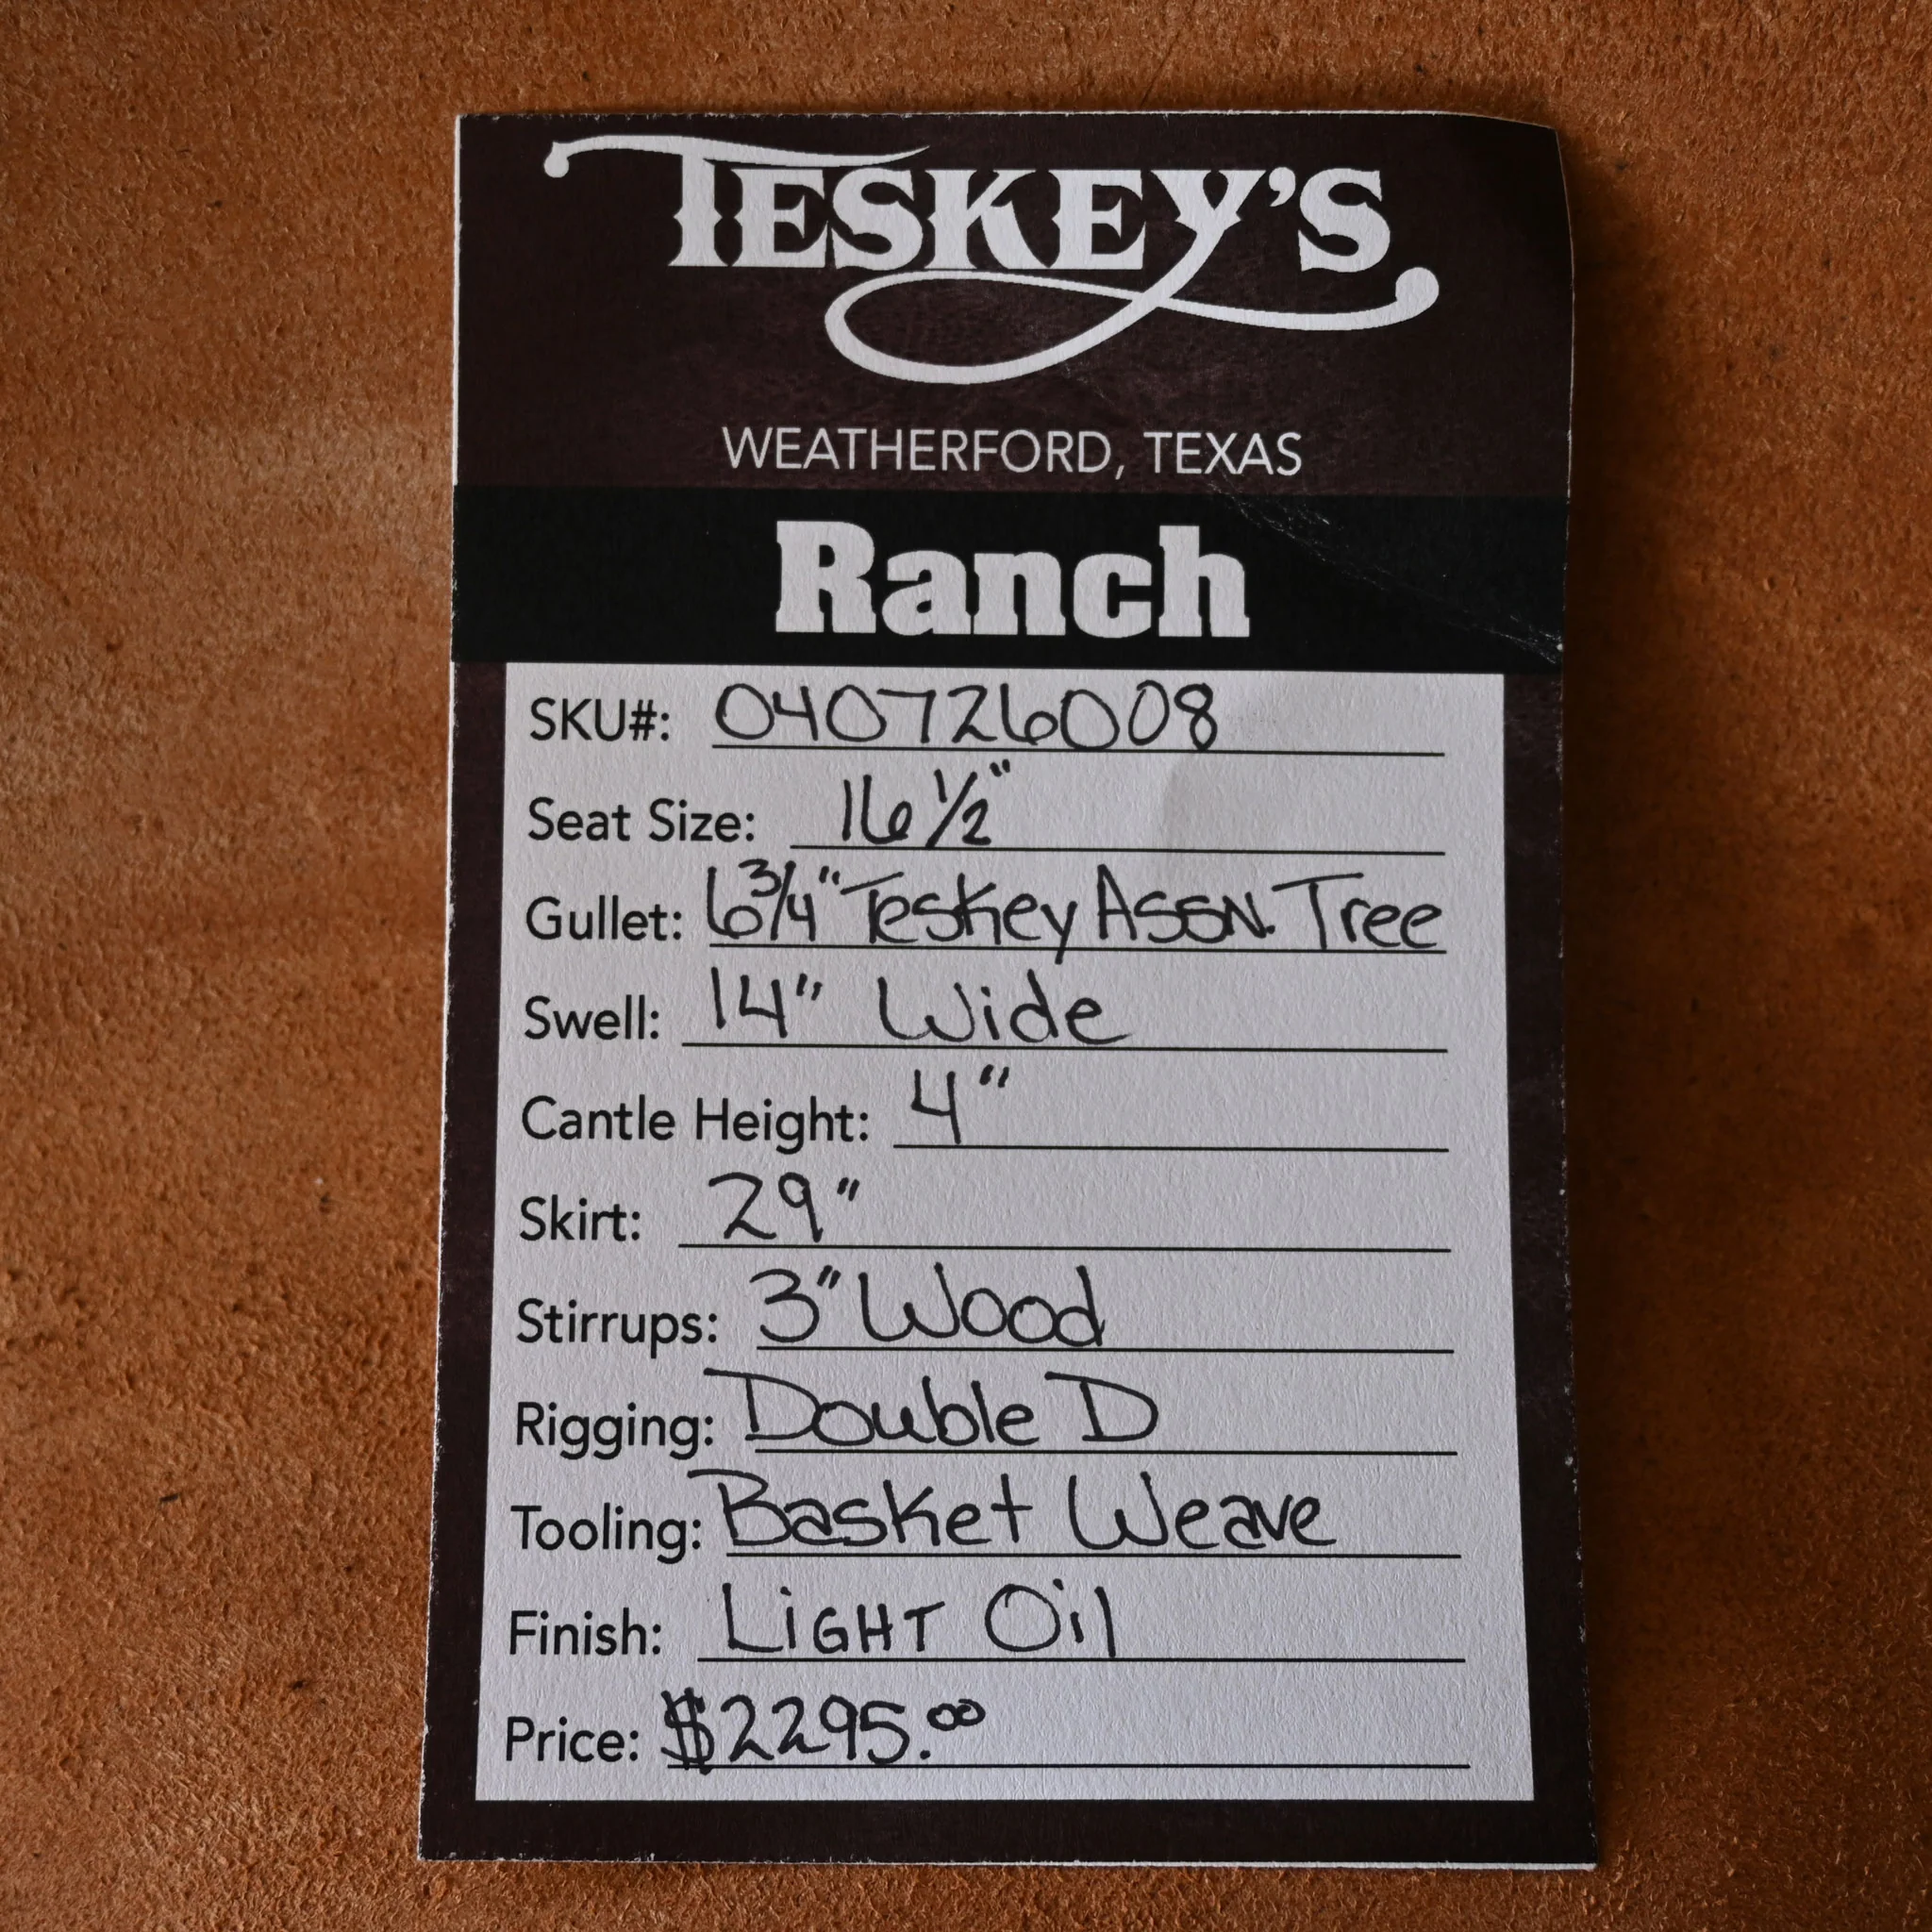 TESKEY'S
WEATHERFORD, TEXAS
Ranch
SKU#: 040726008
Seat Size: 16 1/2"
Gullet: 6 3/4" Teskey Assn. Tree
Swell: 14" Wide
Cantle Height: 4"
Skirt: 29"
Stirrups: 3" Wood
Rigging: Double D
Tooling: Basket Weave
Finish: LiGHT Oil
Price: $2295.00